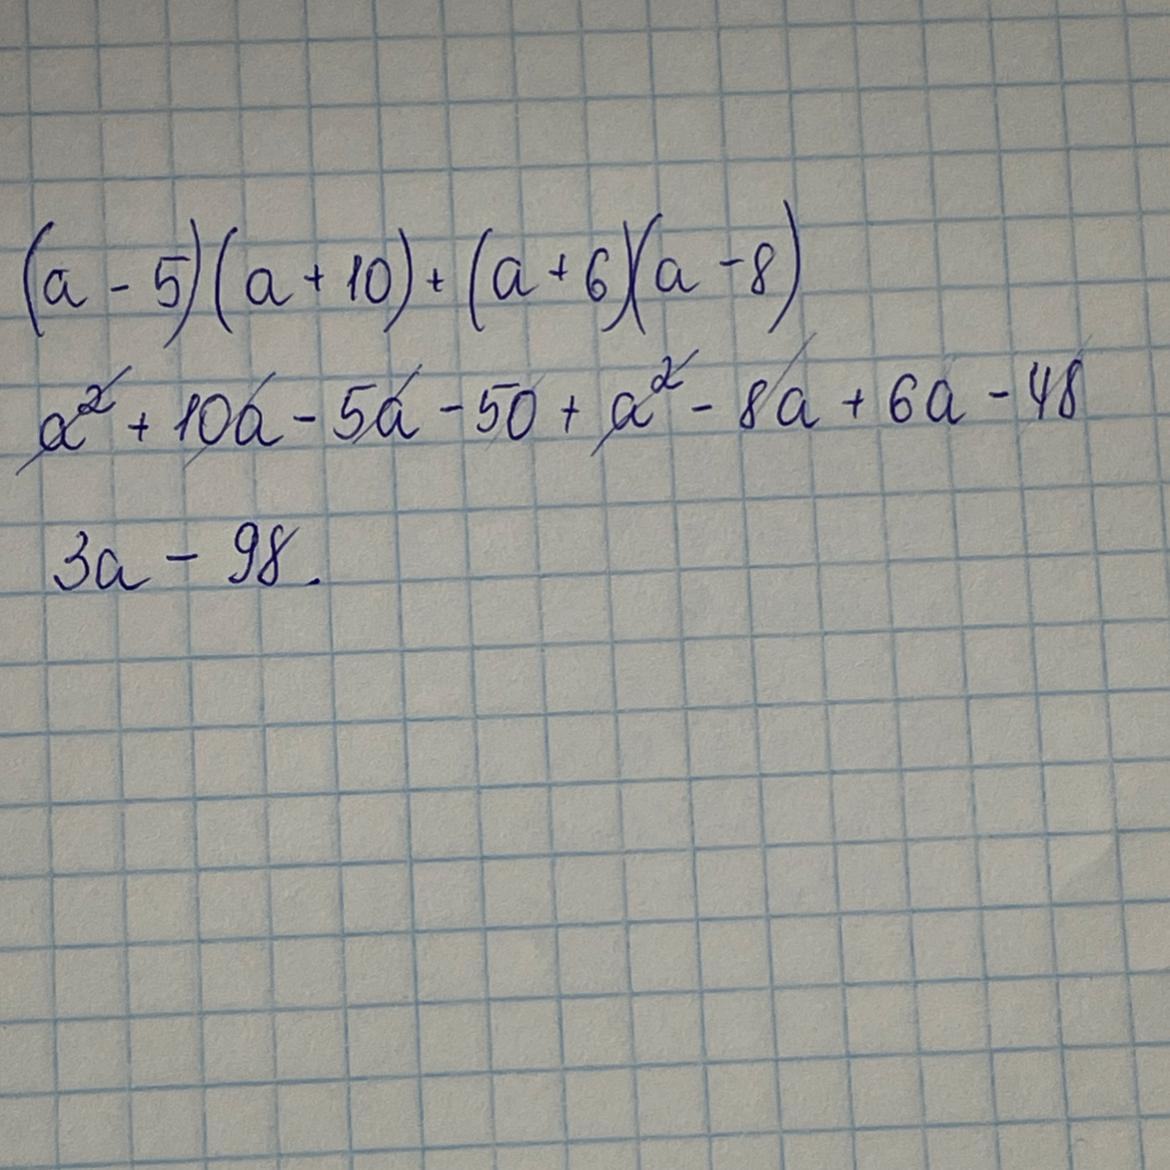 (a - 5)(a + 10) + (a + 6)(a - 8)
a² + 10a - 5a - 50 + a² - 8a + 6a - 48
3a - 98.